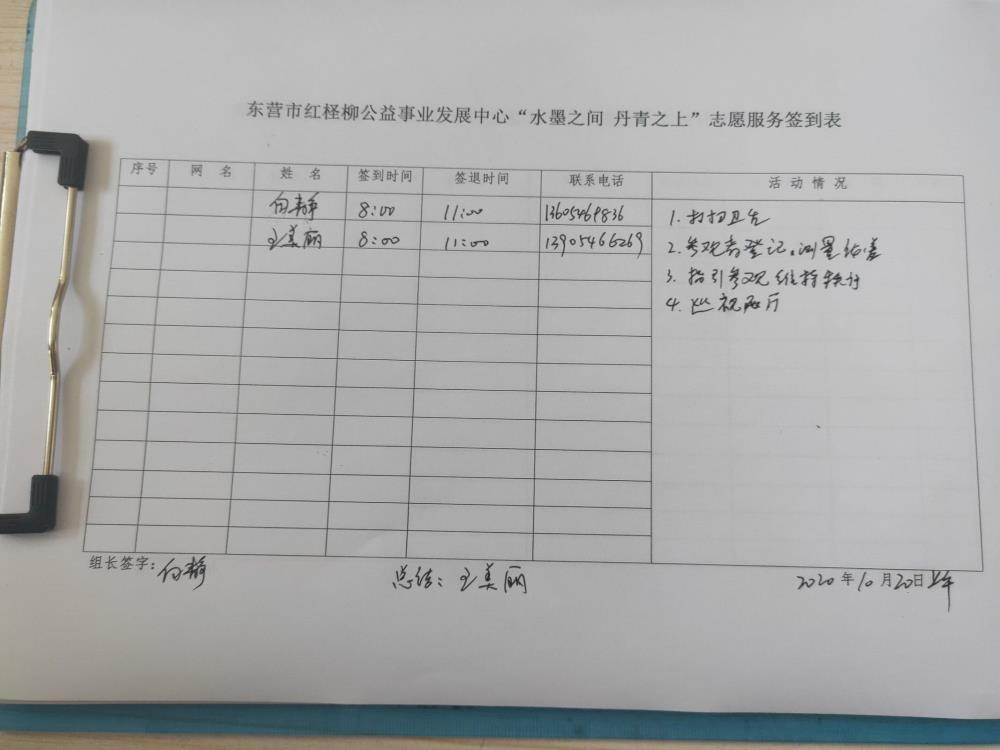 东营市红柽柳公益事业发展中心“水墨之间 丹青之上”志愿服务签到表
序号 网 名 姓 名 签到时间 签退时间 联系电话 活 动 情 况
白静 8:00 11:00 13605469836
王美丽 8:00 11:00 13905466269
1.打扫卫生
2.参观者登记。测量体温
3.指引参观 维持秩序
4.巡视展厅
组长签字:白静 总结:王美丽 2020年10月20日上午